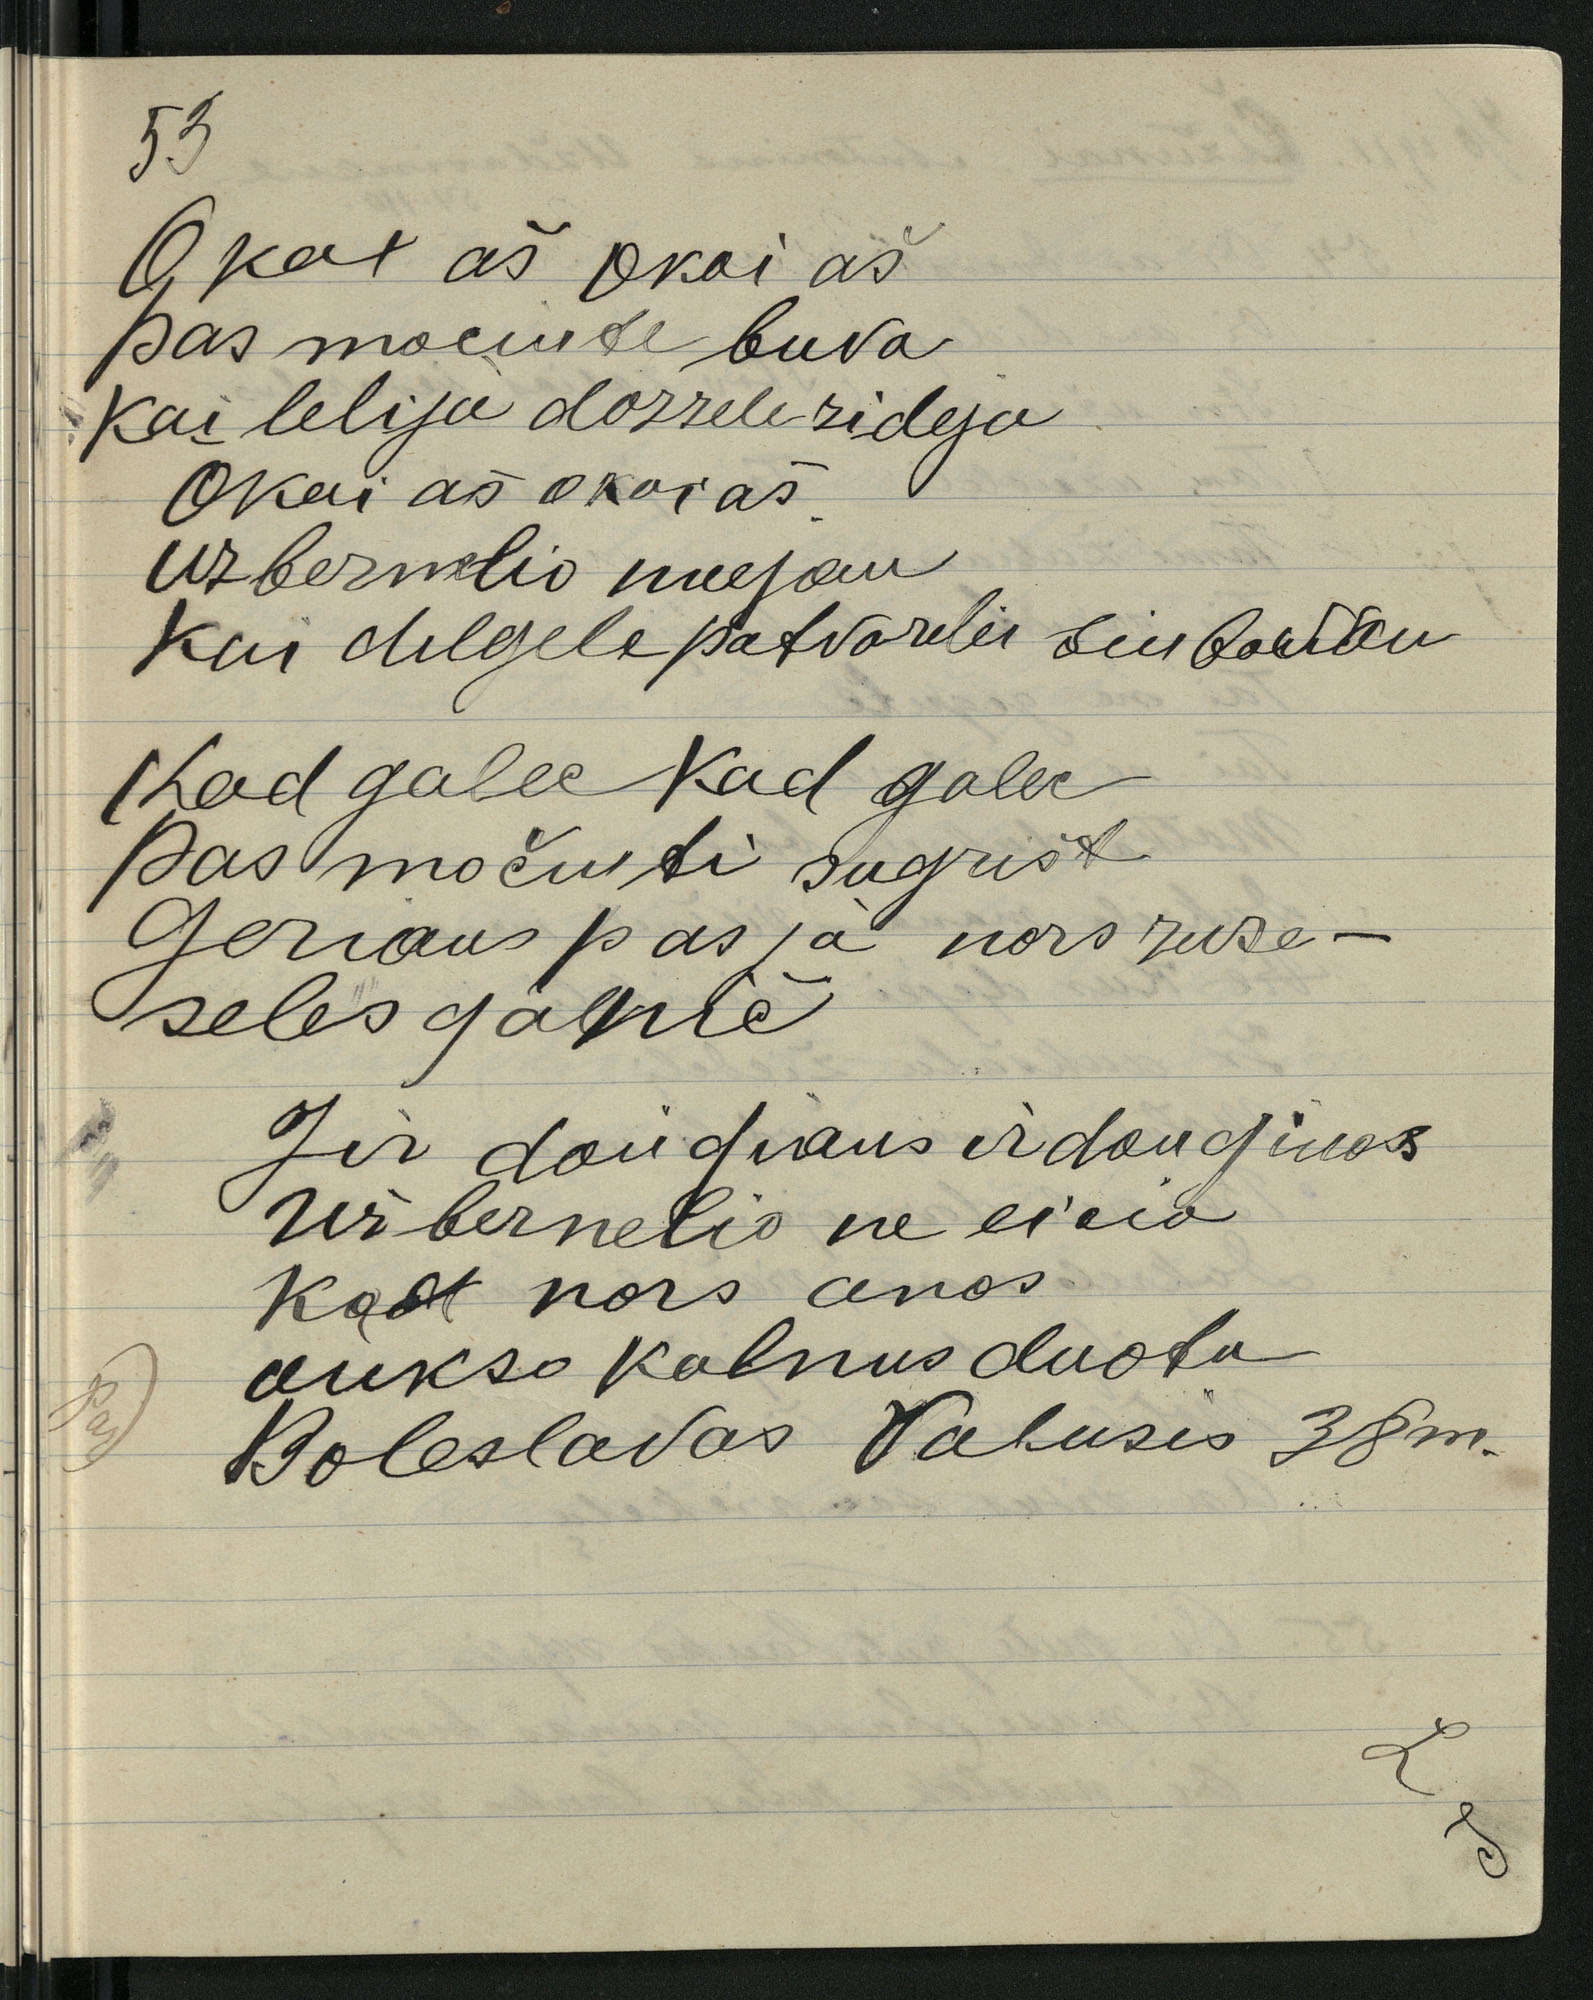 53
O kat aš Okai aš
pas mocinte buva
Kai lelija dorzele zideja
Okai aš okai aš
uz bernelio nuejau
Kai dilgele patvorelei
Kad galec Kad galec
pas močinti sugrišt
Geriaus pas ja nors zuze-
seles ganič
Jir daugiaus ir dauginos
Už bernelio ne eicia
Kad nors anos
aukso kalnus duotu
Boleslavas Valusis 38 m.